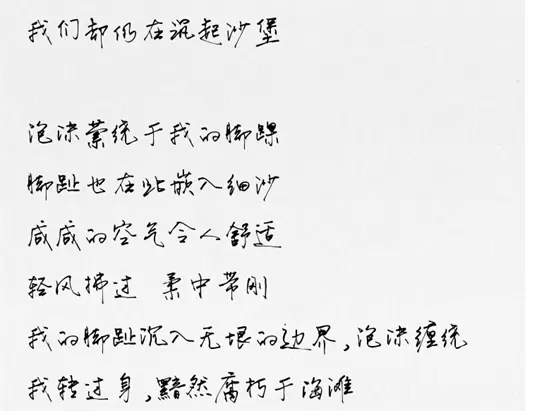 我们都仍在沉起沙堡
泡沫萦绕于我的脚踝
脚趾也在此嵌入细沙
咸咸的空气令人舒适
轻风拂过 柔中带刚
我的脚趾沉入无垠的边界,泡沫缠绕
我转过身,黯然腐朽于海滩